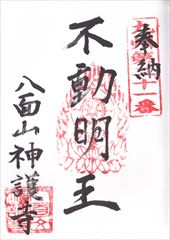 奉納
不動明王
八面山神護寺